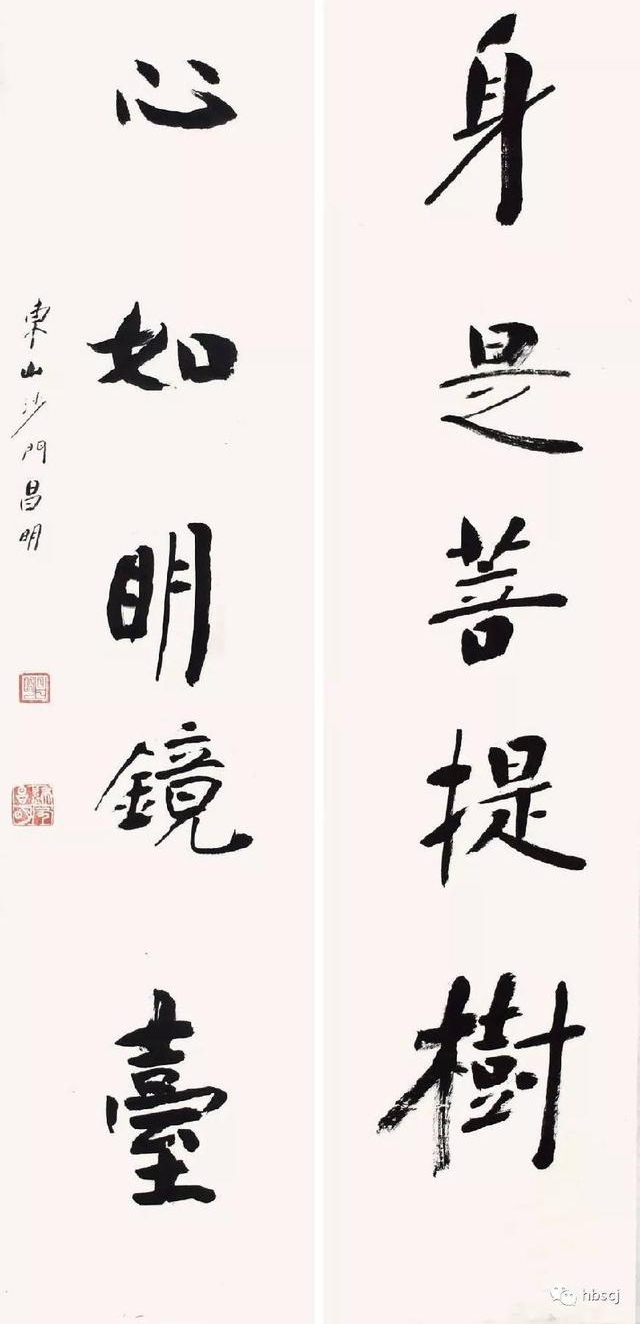 身是菩提樹
心如明鏡臺
東山沙門昌明
hbscj